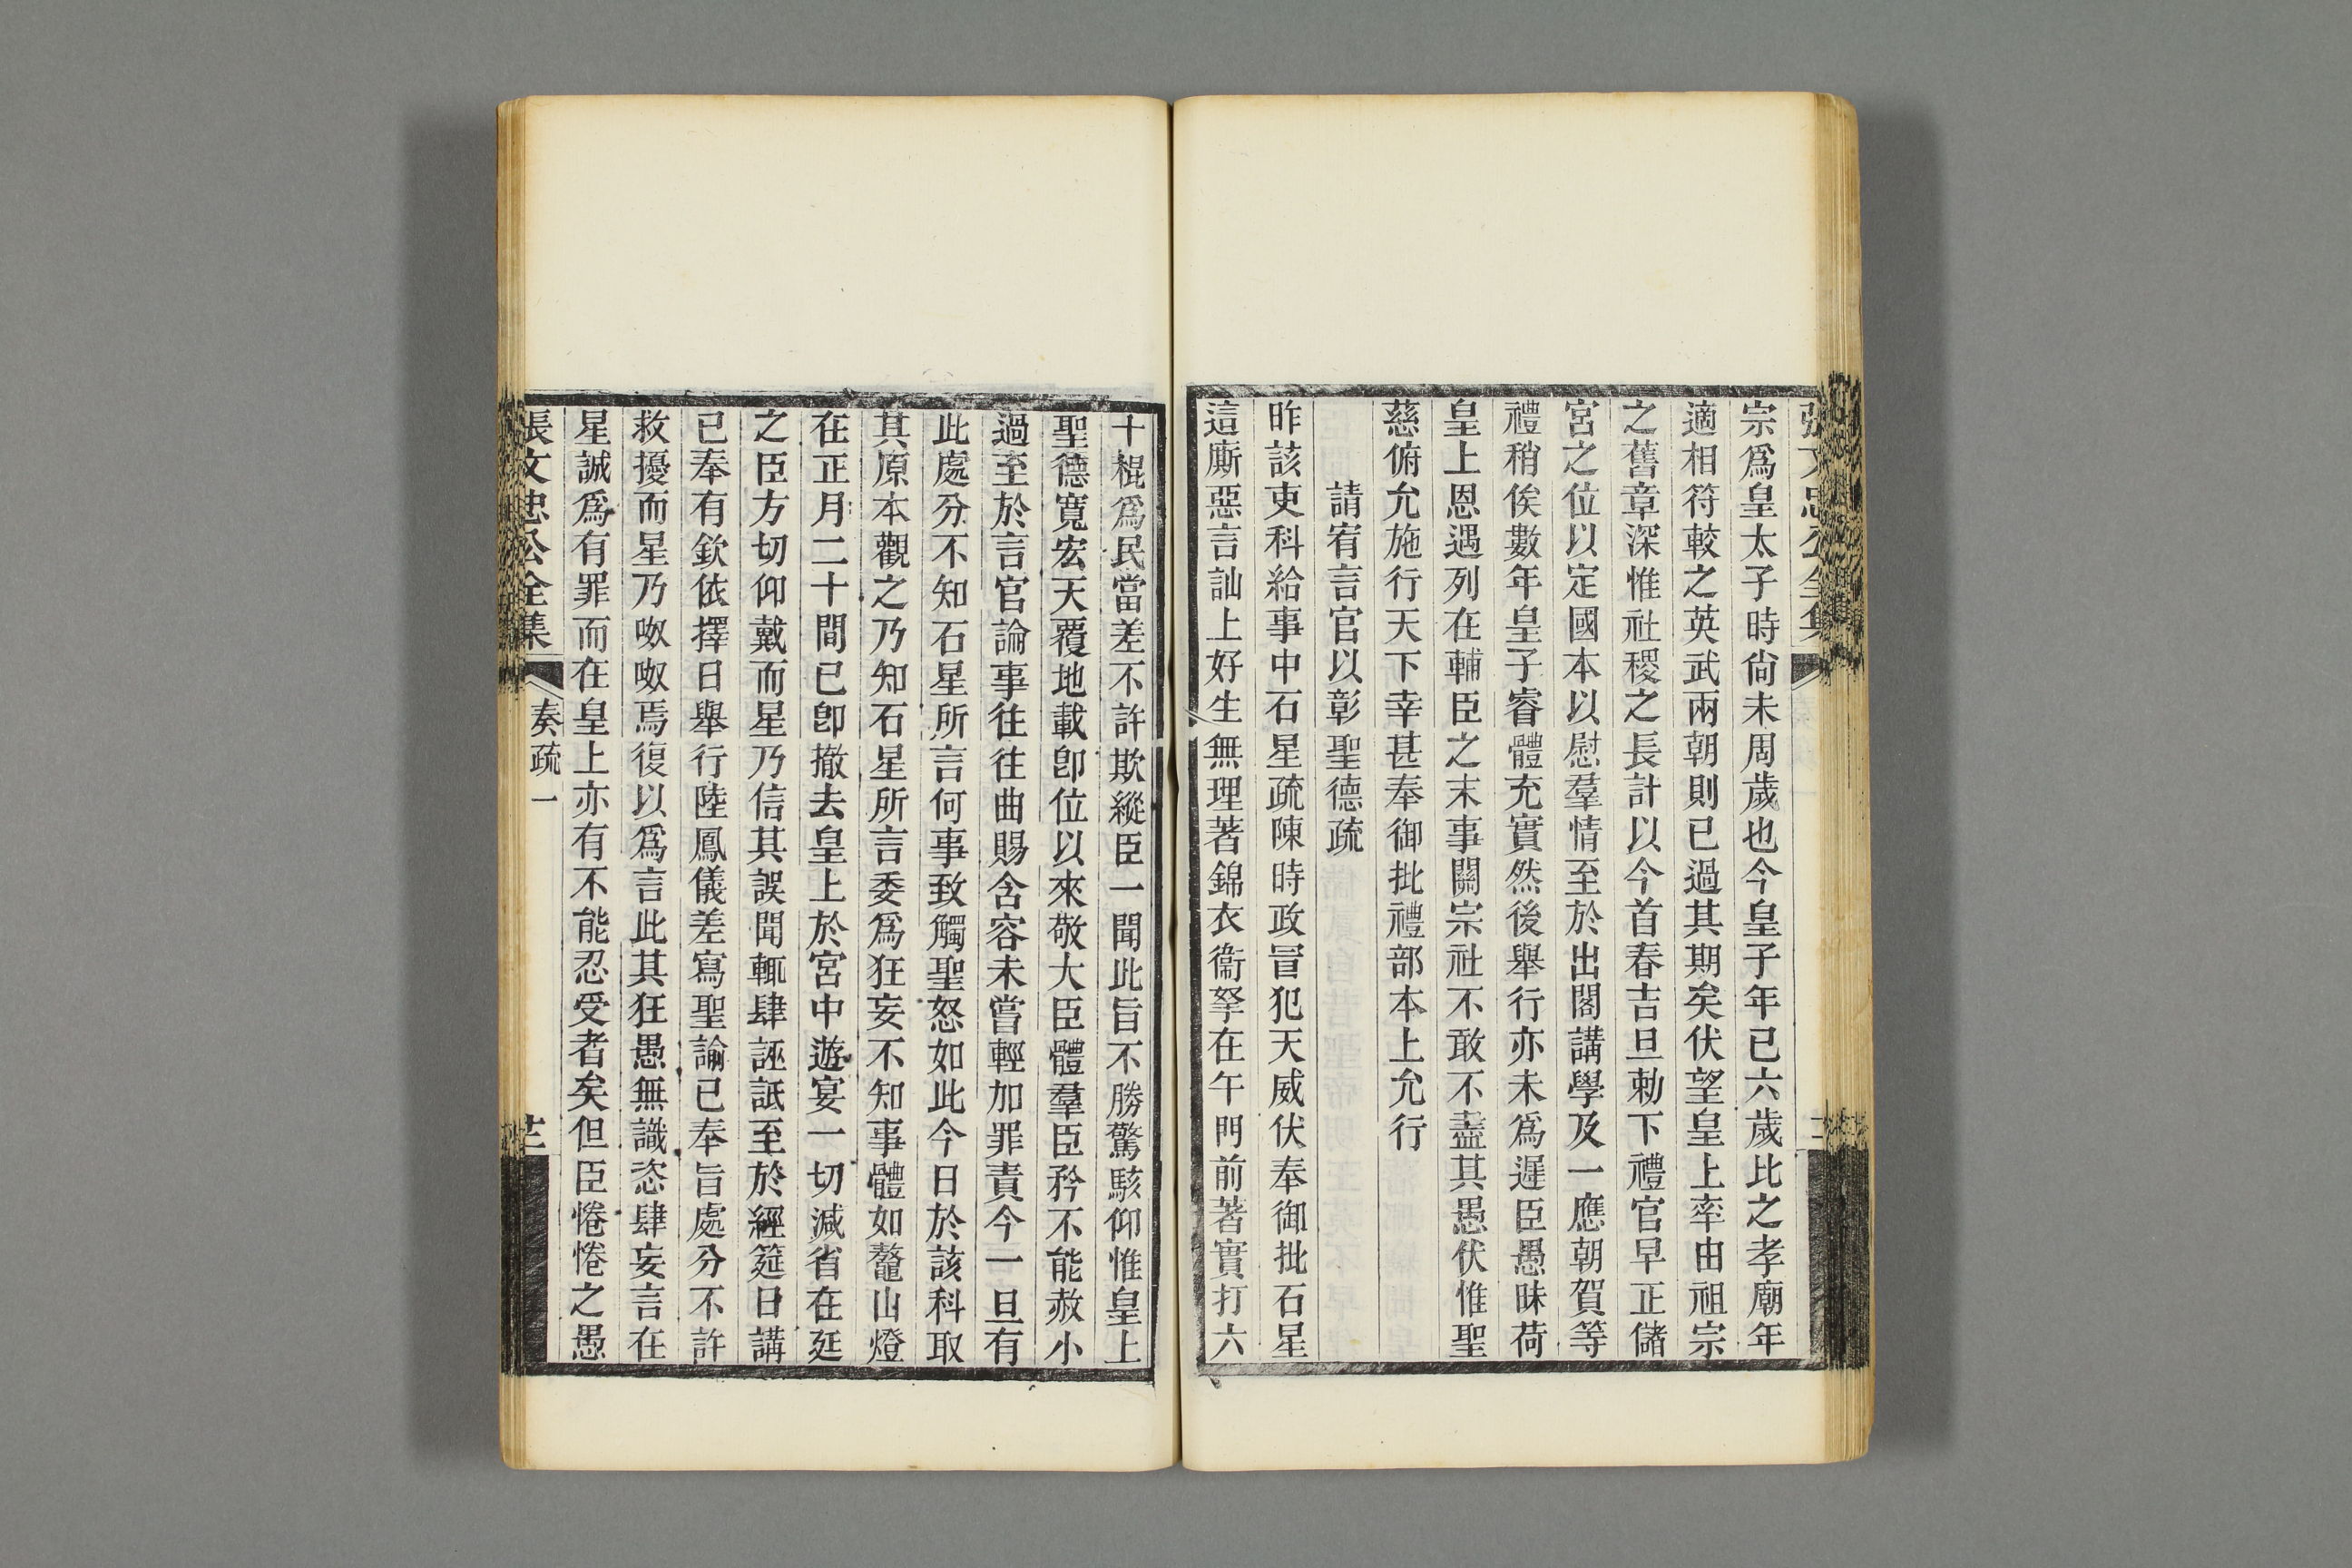 張文忠公全集
宗爲皇太子時尙未周歲也今皇子年已六歲比之孝廟年
適相符較之英武兩朝則已過其期矣伏望皇上率由祖宗
之舊章深惟社稷之長計以今首春吉旦勅下禮官早正儲
宮之位以定國本以慰羣情至於出閣講學及一應朝賀等
禮稍俟數年皇子睿體充實然後舉行亦未爲遲臣愚昧荷
皇上恩遇列在輔臣之末事關宗社不敢不盡其愚伏惟聖
慈俯允施行天下幸甚奉御批禮部本上允行
請宥言官以彰聖德疏
昨該吏科給事中石星疏陳時政冒犯天威伏奉御批石星
這廝惡言訕上好生無理著錦衣衞拏在午門前著實打六
十棍爲民當差不許欺縱臣一聞此旨不勝驚駭仰惟皇上
聖德寬宏天覆地載卽位以來敬大臣體羣臣矜不能赦小
過至於言官論事往往曲賜含容未嘗輕加罪責今一旦有
此處分不知石星所言何事致觸聖怒如此今日於該科取
其原本觀之乃知石星所言委爲狂妄不知事體如鼇山燈
在正月二十間已卽撤去皇上於宮中遊宴一切減省在廷
之臣方切仰戴而星乃信其誤聞輒肆誣詆至於經筵日講
已奉有欽依擇日舉行陸鳳儀差寫聖諭已奉旨處分不許
救擾而星乃呶呶焉復以爲言此其狂愚無識恣肆妄言在
星誠爲有罪而在皇上亦有不能忍受者矣但臣惓惓之愚
張文忠公全集
奏疏一